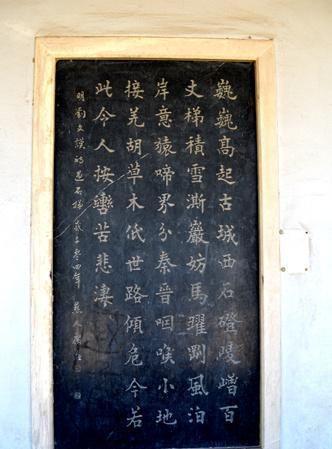 巍巍高起古城西石磴崚嶒百
丈梯積雪澌巖妨馬曜剛風泊
岸意猿啼界分秦晉咽喉小地
接羌胡草木低世路傾危今若
此令人按轡苦悲淒
明劉文 的過石梯 零四年